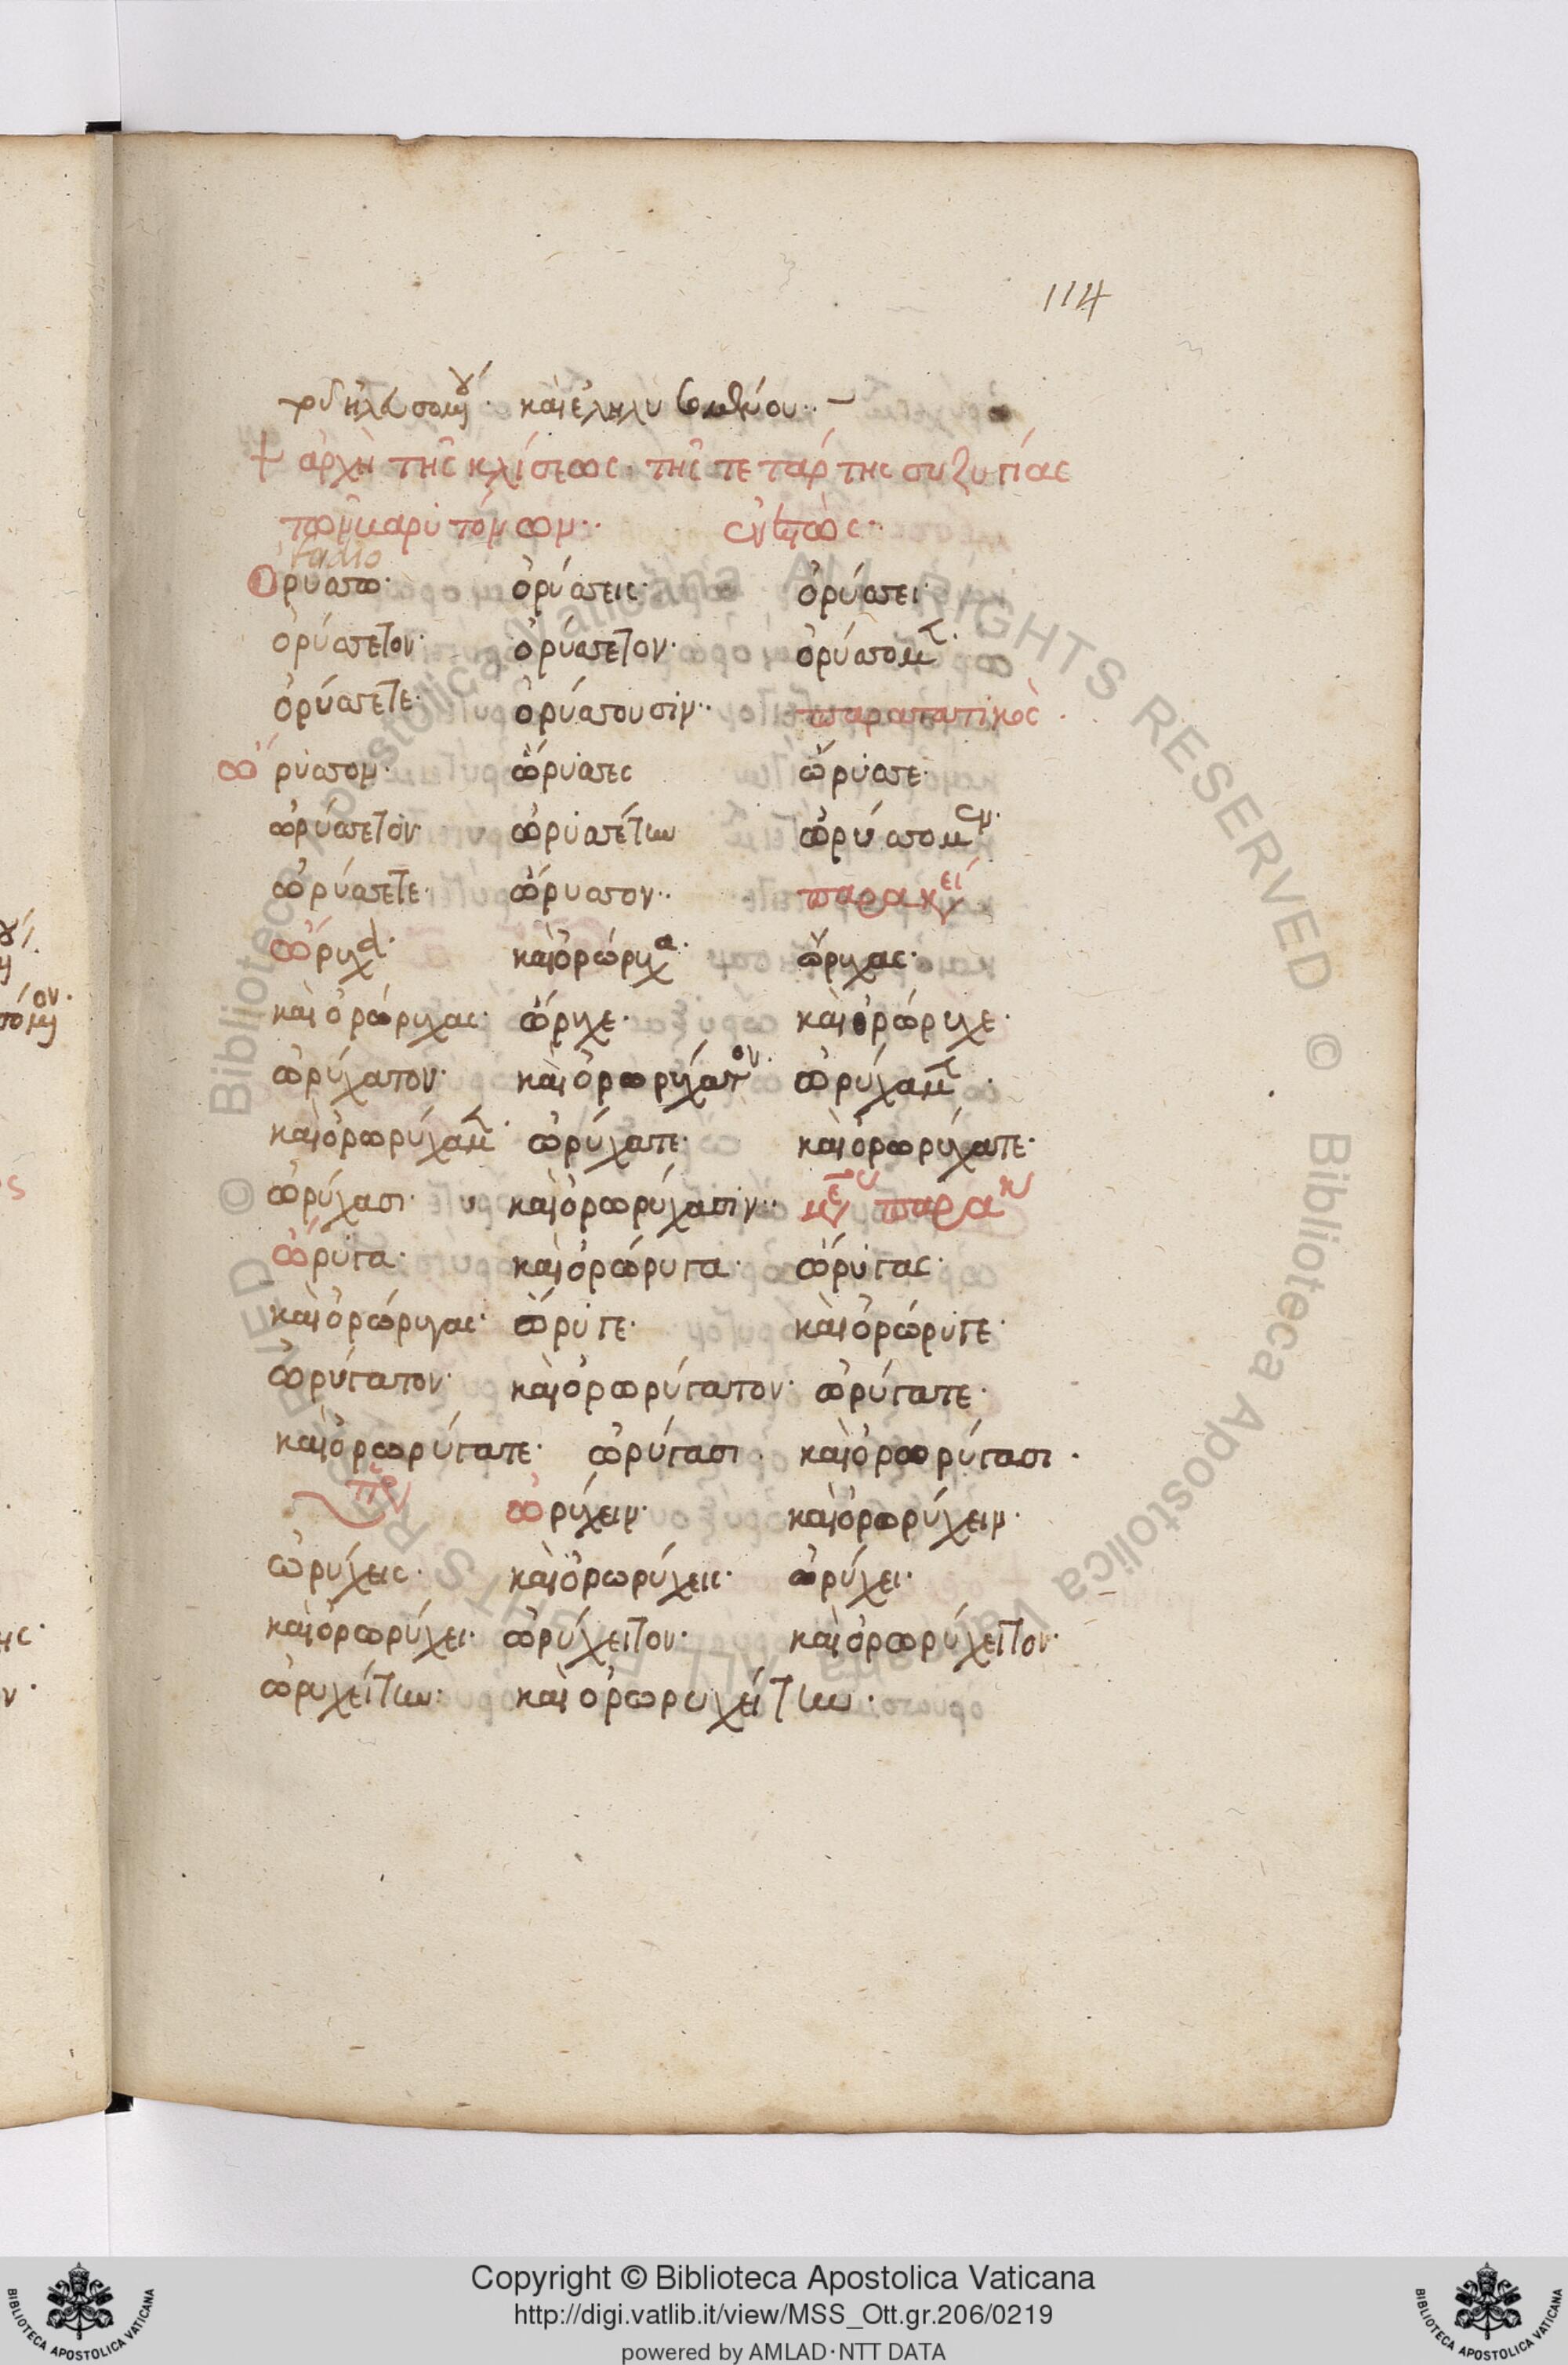 114
καὶ ἐληλυ
+ ἀρχὴ τῆς κλίσεως· τῆς τετάρτης συζυγίας
τῶν βαρυτόνων·· ἐνεστὼς·
fadio
Ὀρύσσω· ὀρύσσεις· ὀρύσσει·
ὀρύσσετον· ὀρύσσετον· ὀρύσσομεν·
ὀρύσσετε· ὀρύσσουσιν·· παρατατικὸς·
ὤρυσσον· ὤρυσσες ὤρυσσε·
ὠρύσσετον· ὠρυσσέτην ὠρύσσομεν·
ὠρύσσετε· ὤρυσσον·· παρακεί
ὤρυχα· καὶ ὀρώρυχα· ὤρυχας·
καὶ ὀρώρυχας· ὤρυχε· καὶ ὀρώρυχε·
ὠρύχατον· καὶ ὀρωρύχατον· ὠρύχαμεν·
καὶ ὀρωρύχαμεν· ὠρύχατε· καὶ ὀρωρύχατε·
ὠρύχασι· καὶ ὀρωρύχασιν·· μέσου παρακ
ὤρυγα· καὶ ὀρώρυγα· ὤρυγας·
καὶ ὀρώρυγας· ὤρυγε· καὶ ὀρώρυγε·
ὠρύγατον· καὶ ὀρωρύγατον· ὠρύγατε·
καὶ ὀρωρύγατε· ὠρύγασι· καὶ ὀρωρύγασι·
ὠρύχειν· καὶ ὀρωρύχειν·
ὠρύχεις· καὶ ὀρωρύχεις· ὠρύχει·
καὶ ὀρωρύχει· ὠρύχειτον· καὶ ὀρωρύχειτον·
ὠρυχείτην· καὶ ὀρωρυχείτην·
© Biblioteca Apostolica Vaticana ALL RIGHTS RESERVED © Biblioteca Apostolica Vaticana ALL RIGHTS RESERVED
Copyright © Biblioteca Apostolica Vaticana
http://digi.vatlib.it/view/MSS_Ott.gr.206/0219
powered by AMLAD·NTT DATA
BIBLIOTECA APOSTOLICA VATICANA
BIBLIOTECA APOSTOLICA VATICANA